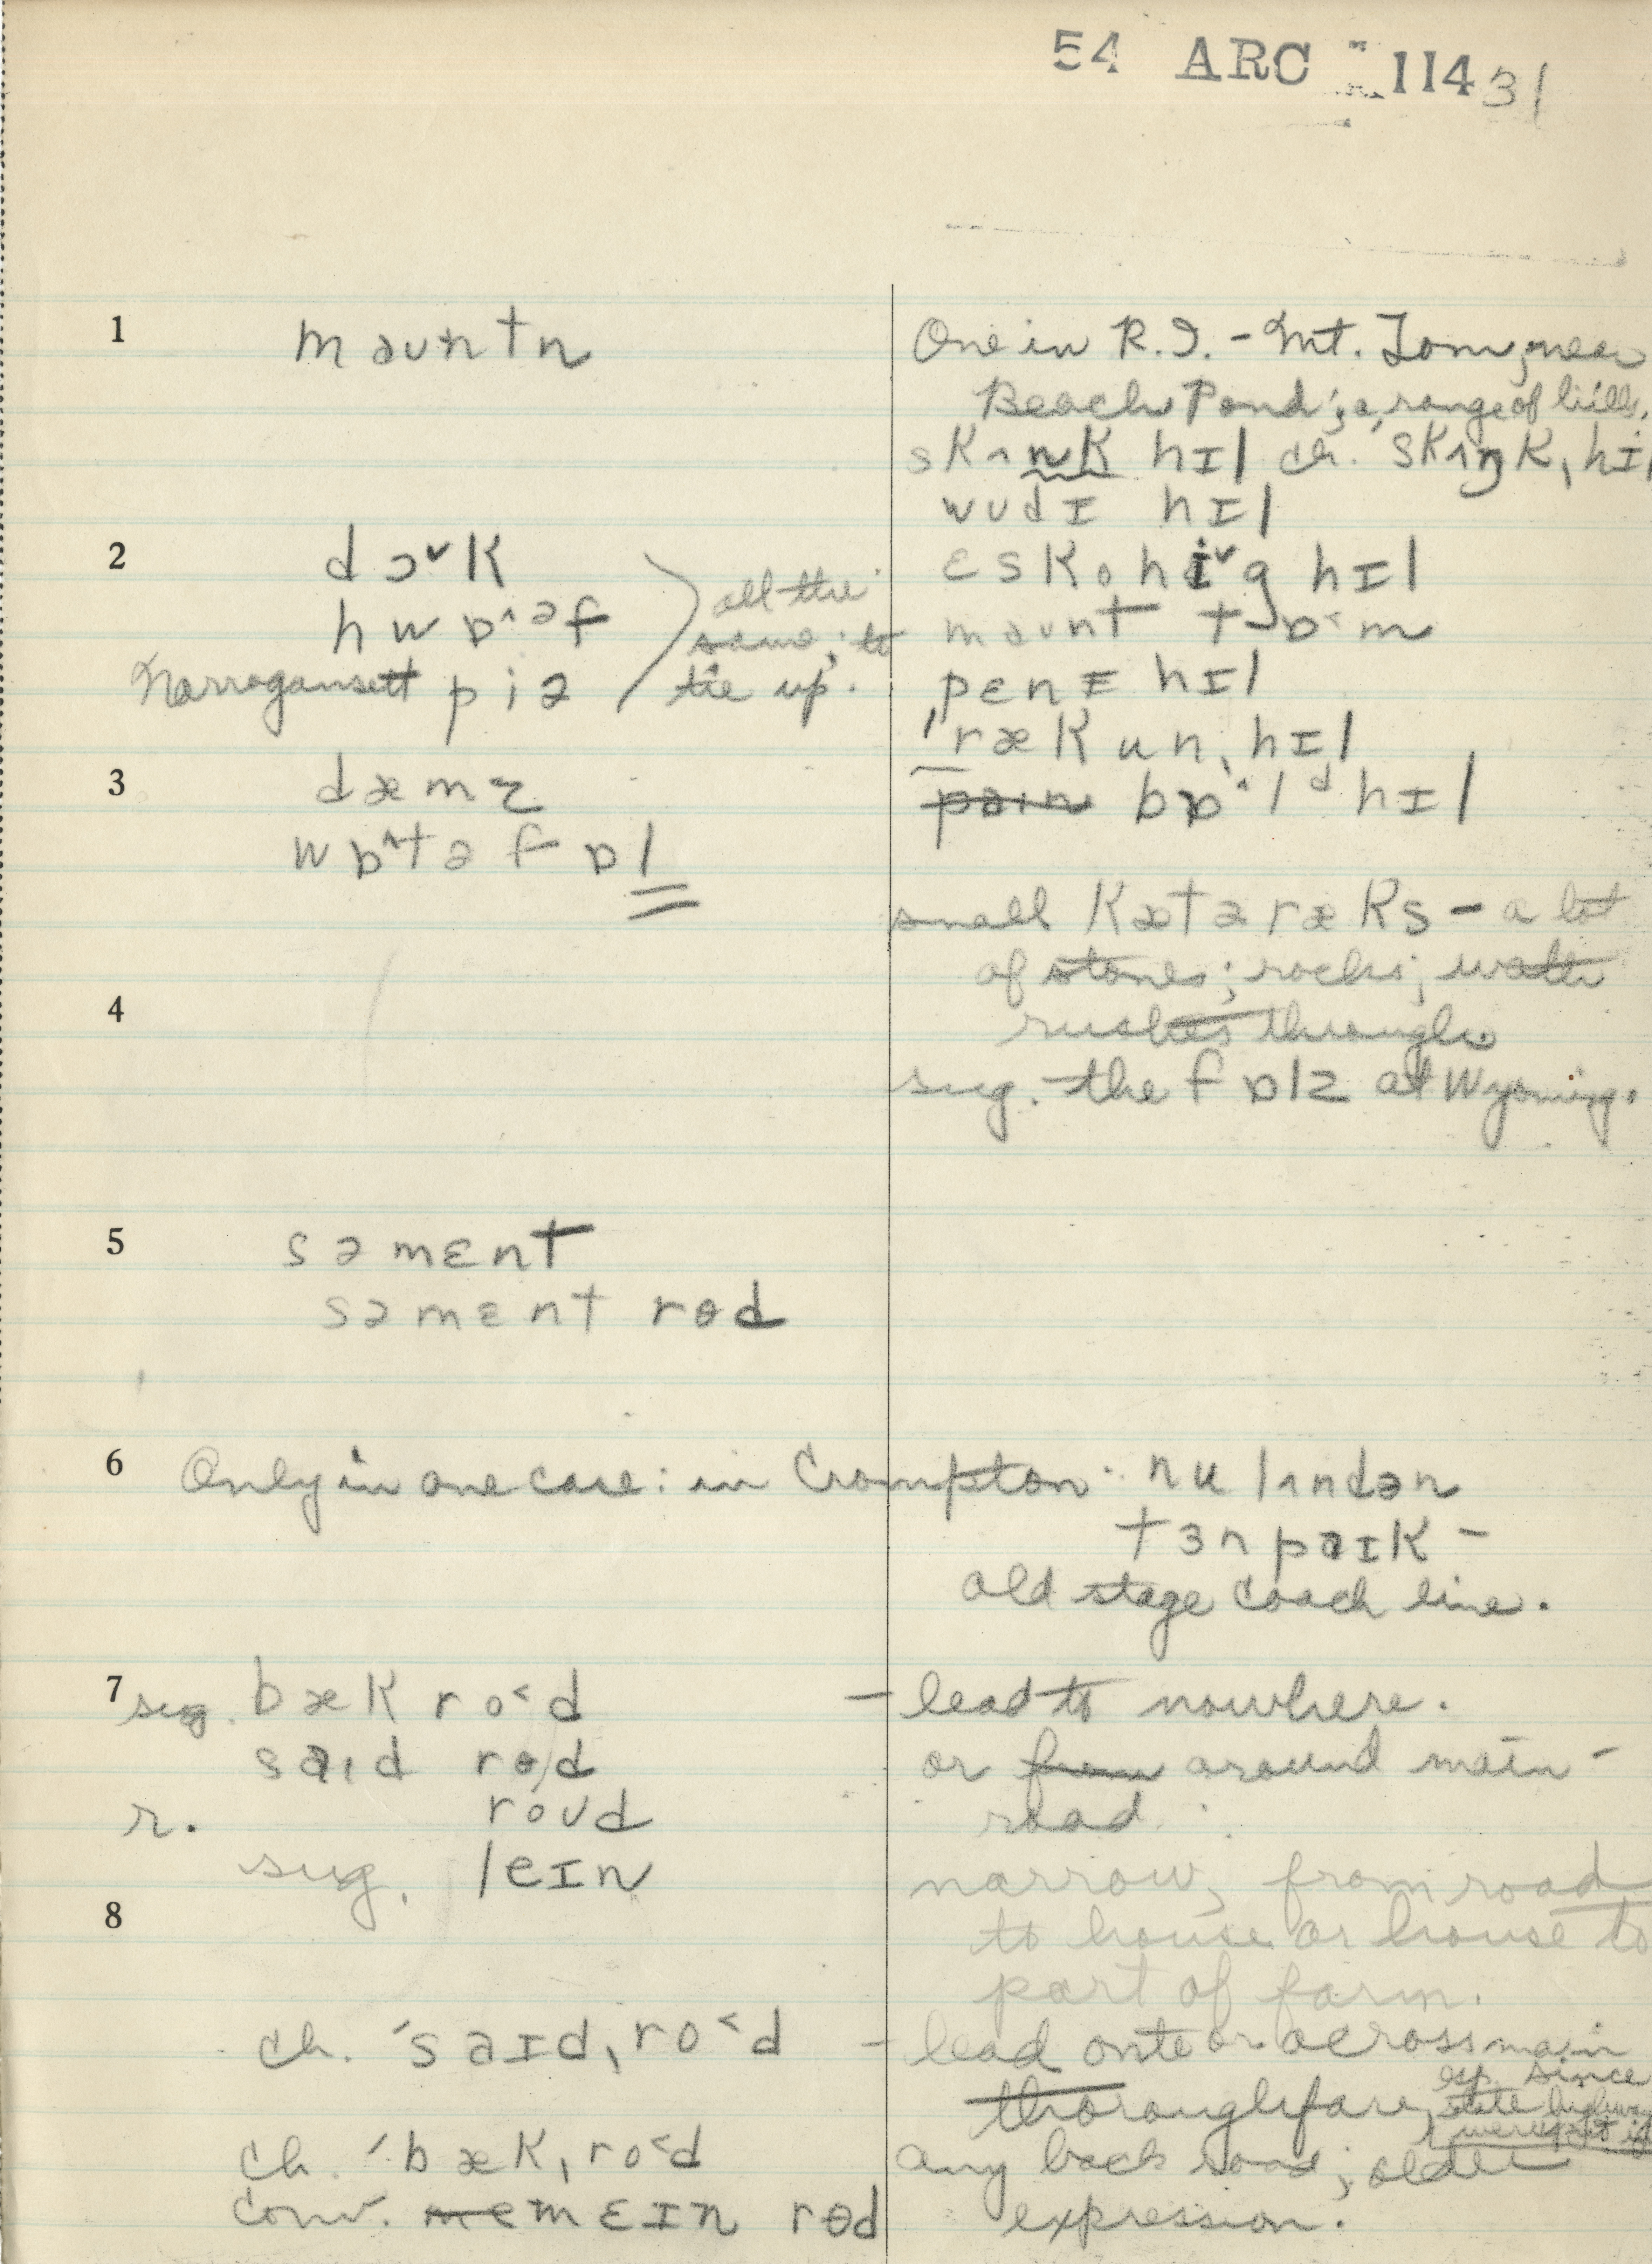 54 ARC 114 31
1 maʊntn One in R.I. - Mt. Tom, near
Beach Pond; a range of hills.
skʌnk hɪl ch. 'skʌŋk,hɪl
wʊdɪ hɪl
2 dɔ˅k ɛskohi˅g hɪl
hwɒ^əf all the maʊnt tɒ˂m
Narragansett piə same; to
tie up. pɛnɪ hɪl
'rækun,hɪl
3 dæmz bɒ^ld hɪl
wɒ^təfɒl
small kætəræks - a lot
of stones; rocks; water
4 rushes through
sug. the fɒlz at Wyoming.
5 səmɛnt
səmɛnt rɵd
6 Only in one case: in Crompton: nu lʌndən
tɜnpaɪk -
old stage coach line.
7 sug. bæk ro˂d - lead to nowhere.
saɪd rɵd or around main -
r. roʊd road.
sug. leɪn narrow, from road
8 to house or house to
part of farm.
ch. 'saɪd,ro˂d - lead onto or across main
thoroughfare, esp. since
state highway
ch. 'bæk,ro˂d any back road; older
conv. mɛɪn rɵd expression.